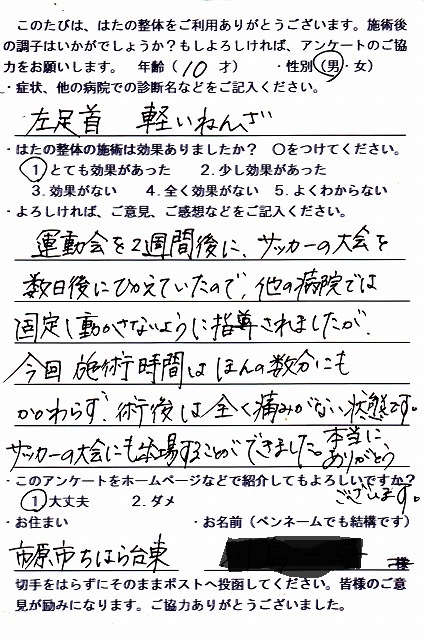 このたびは、はたの整体をご利用ありがとうございます。施術後
の調子はいかがでしょうか？もしよろしければ、アンケートのご協
力をお願いします。　年齢（10　才）　・性別（男・女）
・症状、他の病院での診断名などをご記入ください。
左足首　軽いねんざ
・はたの整体の施術は効果ありましたか？　〇をつけてください。
1.とても効果があった　2.少し効果があった
3.効果がない　4.全く効果がない　5.よくわからない
・よろしければ、ご意見、ご感想などをご記入ください。
運動会を2週間後に、サッカーの大会を
数日後にひかえていたので、他の病院では
固定し動かさないように指導されましたが、
今回施術時間はほんの数分にも
かかわらず、術後は全く痛みがない状態です。
サッカーの大会にも出場することができました。本当に
ありがとう
ございます。
・このアンケートをホームページなどで紹介してもよろしいですか？
1.大丈夫　2.ダメ
・お住まい　・お名前（ペンネームでも結構です）
市原市ちはら台東　様
切手をはらずにそのままポストへ投函してください。皆様のご意
見が励みになります。ご協力ありがとうございました。